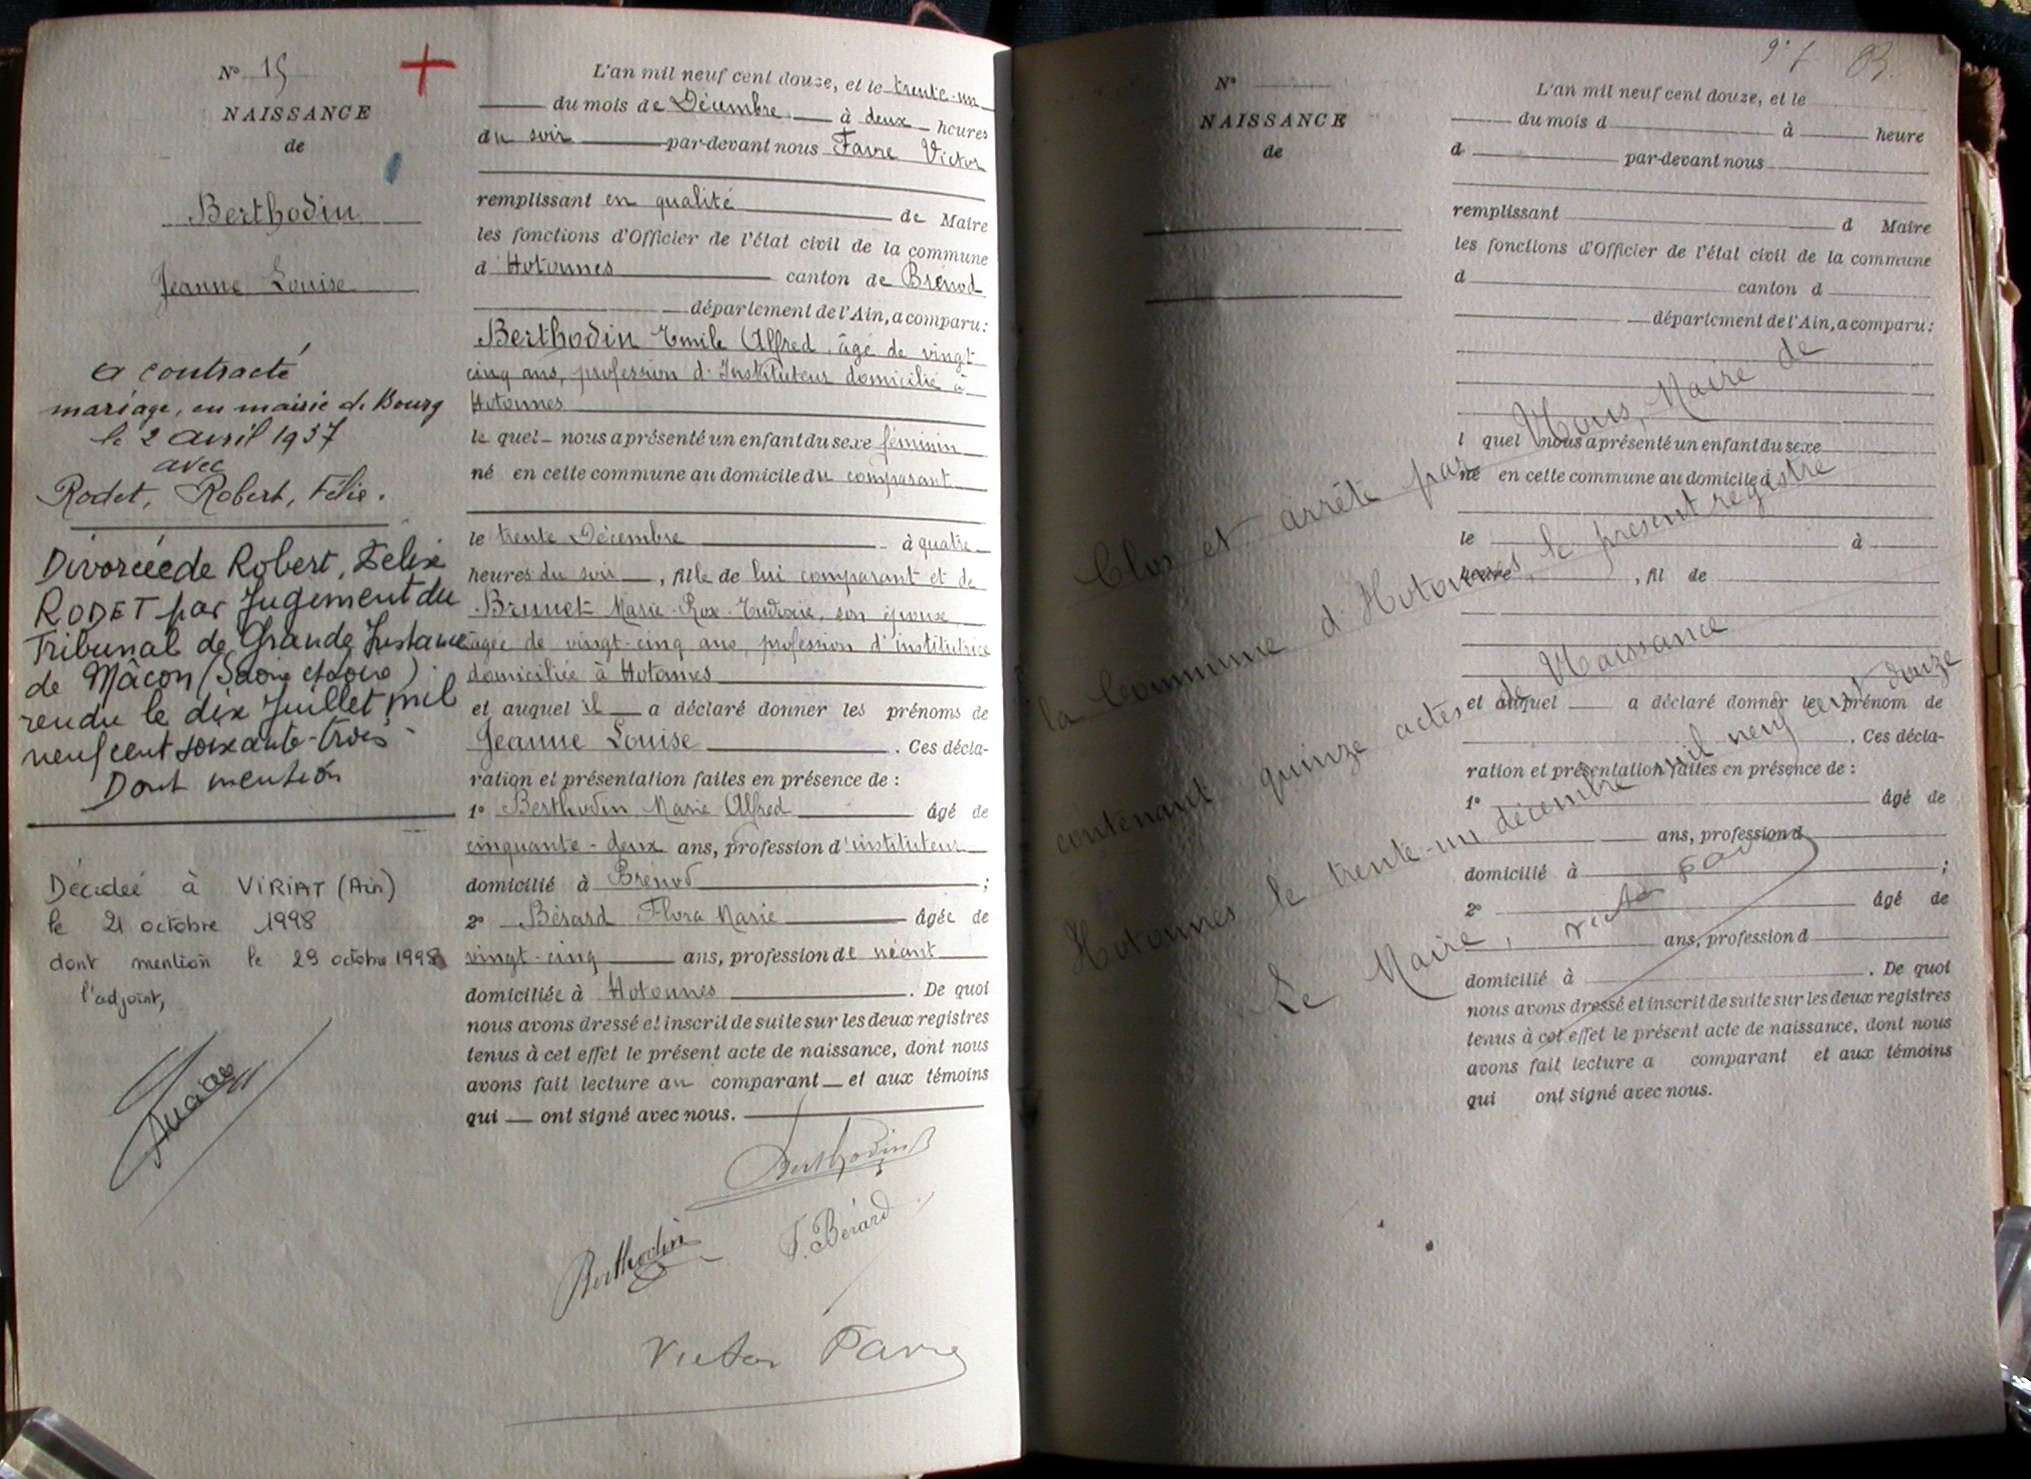 N° 15
NAISSANCE
de
Berthodin
Jeanne Louise
a contracté
mariage, en mairie de Bourg
le 2 avril 1937
avec
Rodet, Robert, Félix.
Divorcée de Robert, Felix
RODET par Jugement du
Tribunal de Grande Instance
de Mâcon (Saône et Loire)
rendu le dix Juillet mil
neuf cent soixante-trois
Dont mention
Décédée à VIRIAT (Ain)
le 21 octobre 1998
dont mention le 29 octobre 1998
l'adjoint,
L'an mil neuf cent douze, et le trente-un
du mois de Décembre à deux heures
du soir par-devant nous Favre Victor
remplissant en qualité de Maire
les fonctions d'Officier de l'état civil de la commune
d'Hotonnes canton de Brénod
département de l'Ain, a comparu :
Berthodin Emile Alfred, âgé de vingt-
cinq ans, profession d'Instituteur domicilié à
Hotonnes
le quel nous a présenté un enfant du sexe féminin
né en cette commune au domicile du comparant
le trente Décembre à quatre
heures du soir, fille de lui comparant et de
Brunet Marie-Rose-Eudoxie, son épouse,
agée de vingt-cinq ans, profession d'institutrice
domiciliée à Hotonnes
et auquel il a déclaré donner les prénoms de
Jeanne Louise. Ces décla-
ration et présentation faites en présence de :
1° Berthodin Marie Alfred âgé de
cinquante-deux ans, profession d'instituteur
domicilié à Brénod ;
2° Bérard Flora Marie âgée de
vingt-cinq ans, profession de néant
domiciliée à Hotonnes. De quoi
nous avons dressé et inscrit de suite sur les deux registres
tenus à cet effet le présent acte de naissance, dont nous
avons fait lecture au comparant et aux témoins
qui ont signé avec nous.
Berthodin
Berthodin F. Bérard
Victor Favre
N°
NAISSANCE
de
L'an mil neuf cent douze, et le
du mois d à heure
d par-devant nous
remplissant d Maire
les fonctions d'Officier de l'état civil de la commune
d canton d
département de l'Ain, a comparu :
l quel nous a présenté un enfant du sexe
né en cette commune au domicile d
le à
heure , fil de
et auquel a déclaré donner le prénom de
. Ces décla-
ration et présentation faites en présence de :
1° âgé de
ans, profession d
domicilié à ;
2° âgé de
ans, profession d
domicilié à . De quoi
nous avons dressé et inscrit de suite sur les deux registres
tenus à cet effet le présent acte de naissance, dont nous
avons fait lecture a comparant et aux témoins
qui ont signé avec nous.
Clos et arrêté par Nous, Maire de
la Commune d'Hotonnes, le présent registre
contenant quinze actes de Naissance
Hotonnes le trente-un décembre mil neuf cent douze
Le Maire, Victor Favre